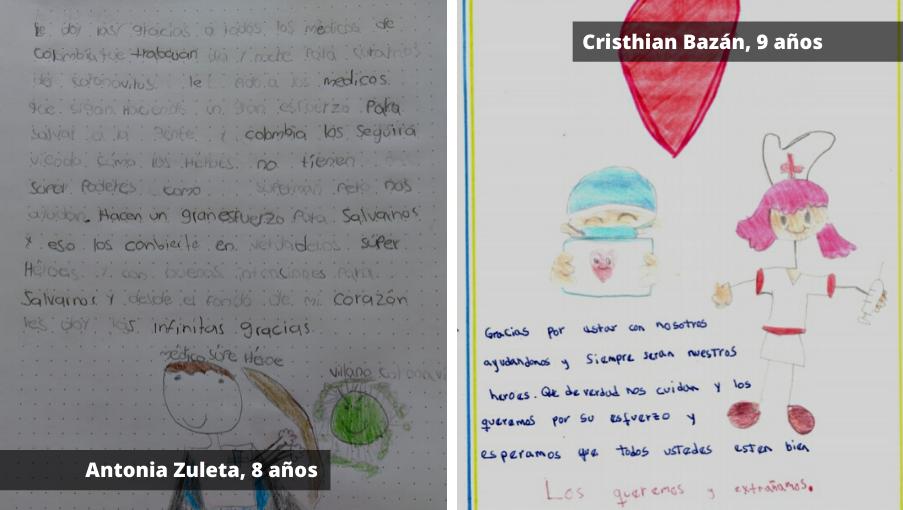 le doy las gracias a todos los médicos de
Colombia que trabajan día y noche para curarnos
coronavirus. le pido a los medicos
que sigan Haciendo un gran esfuerzo para
salvar a la gente y colombia los seguira
viendo como los Héroes. no tienen
súper Poderes como superman pero nos
ayudan. Hacen un gran esfuerzo para Salvarnos
y eso los conbierte en verdaderos súper
Héroes y con buenas intenciones para
Salvarnos y desde el fondo de mi corazón
les doy las infinitas gracias.
médico súper Héroe
villano
Antonia Zuleta, 8 años
Cristhian Bazán, 9 años
Gracias por estar con nosotros
ayudandonos y siempre seran nuestros
heroes. Que de verdad nos cuidan y los
queremos por su esfuerzo y
esperamos que todos ustedes esten bien
Los queremos y extrañamos.